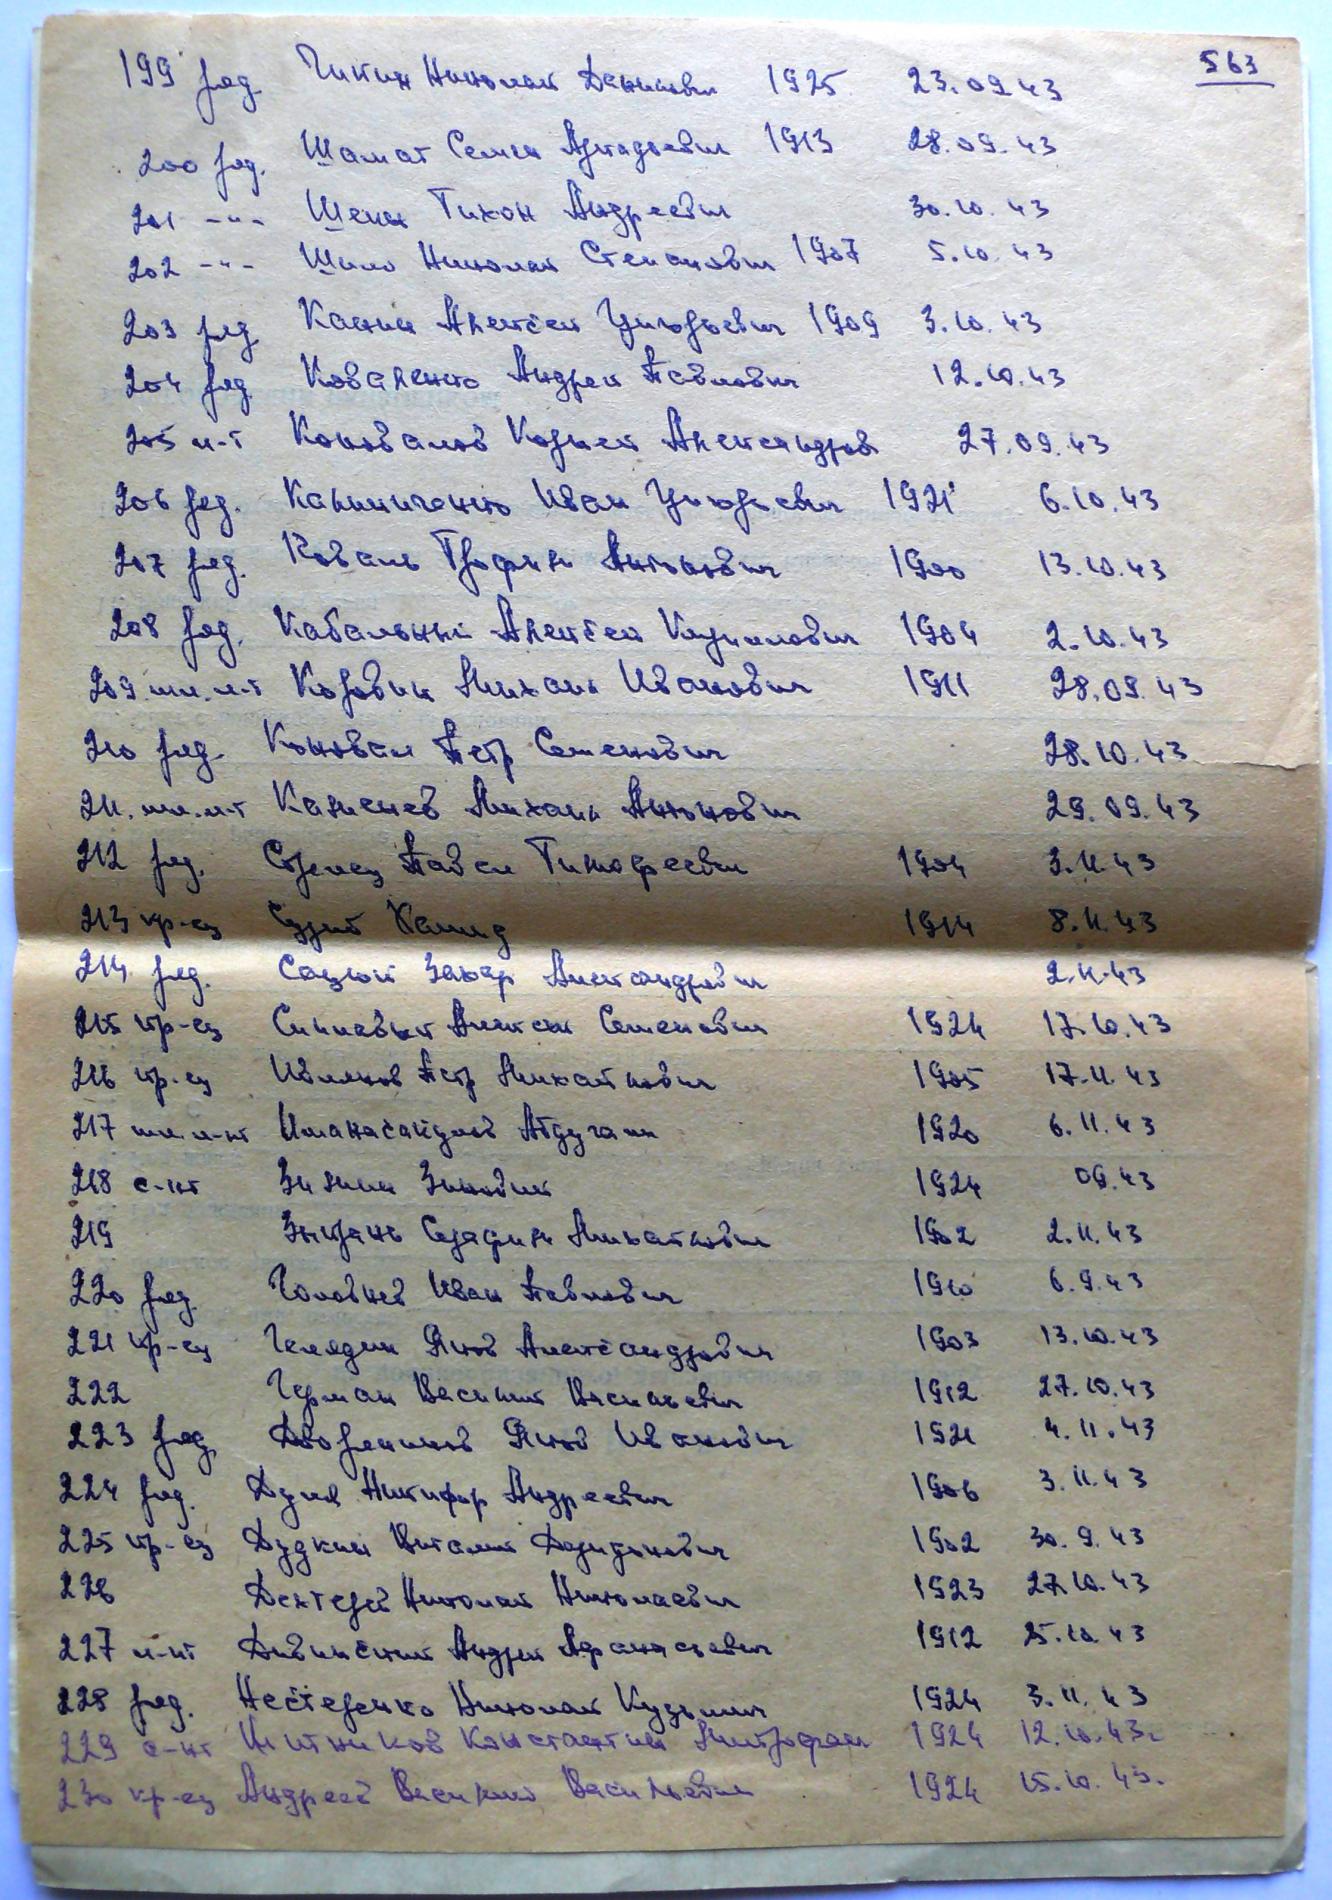 563
199 ряд. Чикин Николай Денисович 1925 23.09.43
200 ряд. Шамот Семен Аркадьевич 1913 28.09.43
201 -"- Шеин Тихон Андреевич 30.10.43
202 -"- Шило Николай Степанович 1907 5.10.43
203 ряд. Канин Алексей Григорьевич 1909 3.10.43
204 ряд. Коваленко Андрей Павлович 12.10.43
205 л-т Коновалов Корней Александров 27.09.43
206 ряд. Калиниченко Иван Григорьевич 1921 6.10.43
207 ряд. Коваль Трофим Антонович 1900 13.10.43
208 ряд. Кабальный Алексей Кириллович 1904 2.10.43
209 мл. л-т Коровин Михаил Иванович 1911 28.09.43
210 ряд. Коновал Петр Семенович 28.10.43
211. мл. л-т Михаил Антонович 29.09.43
212 ряд. Стрелец Павел Тимофеевич 1904 3.11.43
213 кр-ец 1914 8.11.43
214 ряд. Захар Александрович 2.11.43
215 кр-ец Алексей Семенович 1924 17.10.43
216 кр-ец Петр Михайлович 1905 17.11.43
217 мл. л-нт 1920 6.11.43
218 с-нт Зиновий 1924 09.43
219 Серафим Михайлович 1902 2.11.43
220 ряд. Головнев Иван Павлович 1910 6.9.43
221 кр-ец Челядин Яков Александрович 1903 13.10.43
222 Герман Василий Васильевич 1912 27.10.43
223 ряд. Яков Иванович 1921 4.11.43
224 ряд. Никифор Андреевич 1906 3.11.43
225 кр-ец Дудкин Виталий 1902 30.9.43
226 Дехтерев Николай Николаевич 1923 27.10.43
227 л-нт Андрей Афанасьевич 1912 25.10.43
228 ряд. Нестеренко Николай Кузьмич 1924 3.11.43
229 с-нт Константин Митрофан 1924 12.10.43г
230 кр-ец Андреев Василий Васильевич 1924 15.10.43.